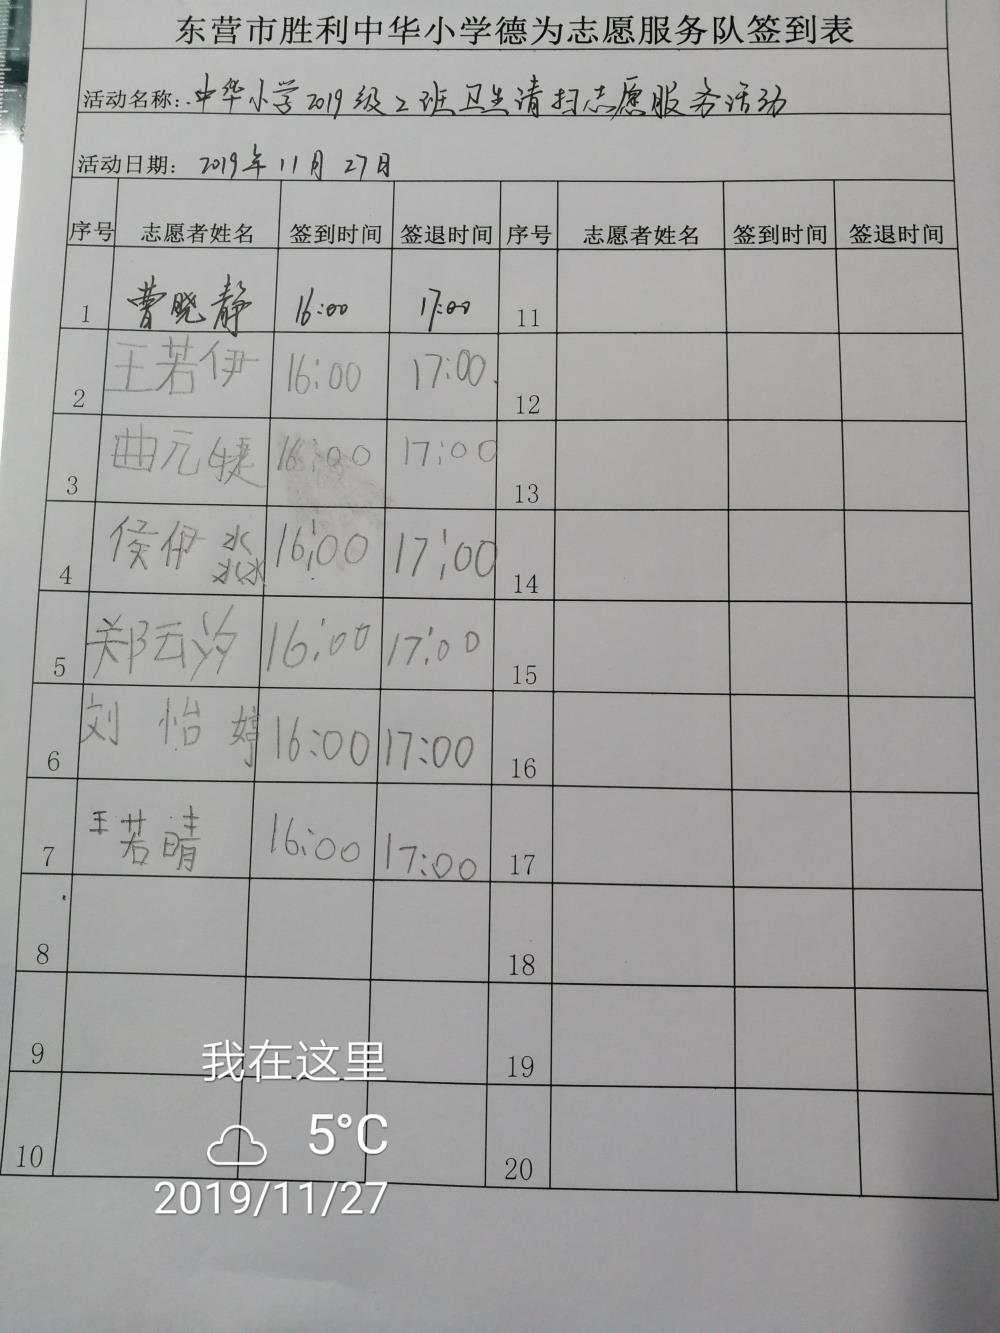 东营市胜利中华小学德为志愿服务队签到表
活动名称：中华小学2019级2班卫生请扫志愿服务活动
活动日期：2019年11月27日
序号 志愿者姓名 签到时间 签退时间 序号 志愿者姓名 签到时间 签退时间
1 曹晓静 16:00 17:00 11
2 王若伊 16:00 17:00. 12
3 曲元婕 16:00 17:00 13
4 侯伊淼 16:00 17:00 14
5 郑云汐 16:00 17:00 15
6 刘怡婷 16:00 17:00 16
7 王若晴 16:00 17:00 17
8 18
9 19
10 20
我在这里
5°C
2019/11/27